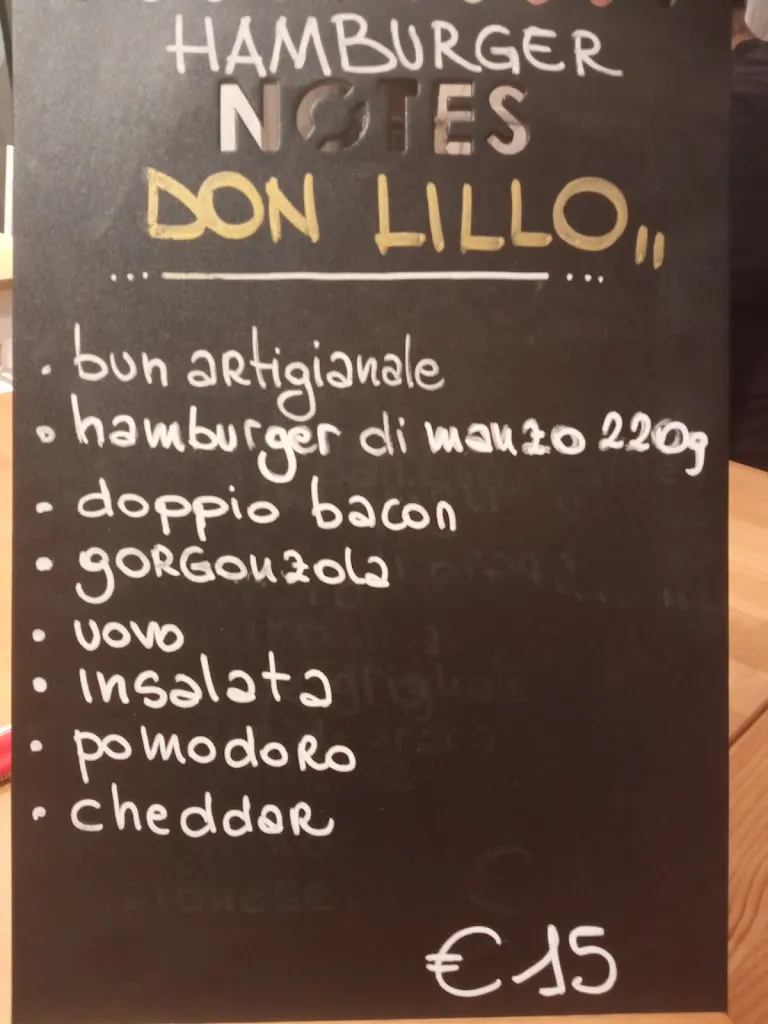 HAMBURGER
NOTES
DON LILLO,,
... ...
• bun artigianale
• hamburger di manzo 220g
• doppio bacon
• gorgonzola
• uovo
• insalata
• pomodoro
• cheddar
€15